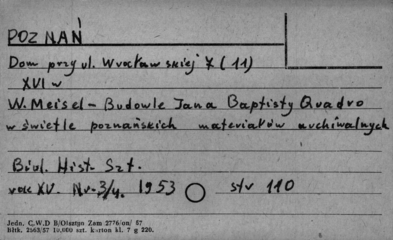 POZNAŃ
Dom przy ul. Wrocławskiej 7 (11)
XVI w
W. Meisel - Budowle Jana Baptisty Quadro
w świetle poznańskich materiałów archiwalnych
Biul. Hist. Szt.
rok XV. Nr. 3/4. 1953 str 110
Jedn. C.W.D B/Olsztyn Zam 2776/on/ 57
bltk. 2563/57 10,000 szt. karton kl. 7 g 220.